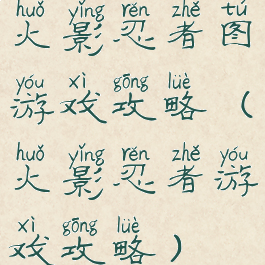 huǒ yǐng rěn zhě tú
火影忍者图
yóu xì gōng lüè
游戏攻略（
huǒ yǐng rěn zhě yóu
火影忍者游
xì gōng lüè
戏攻略）